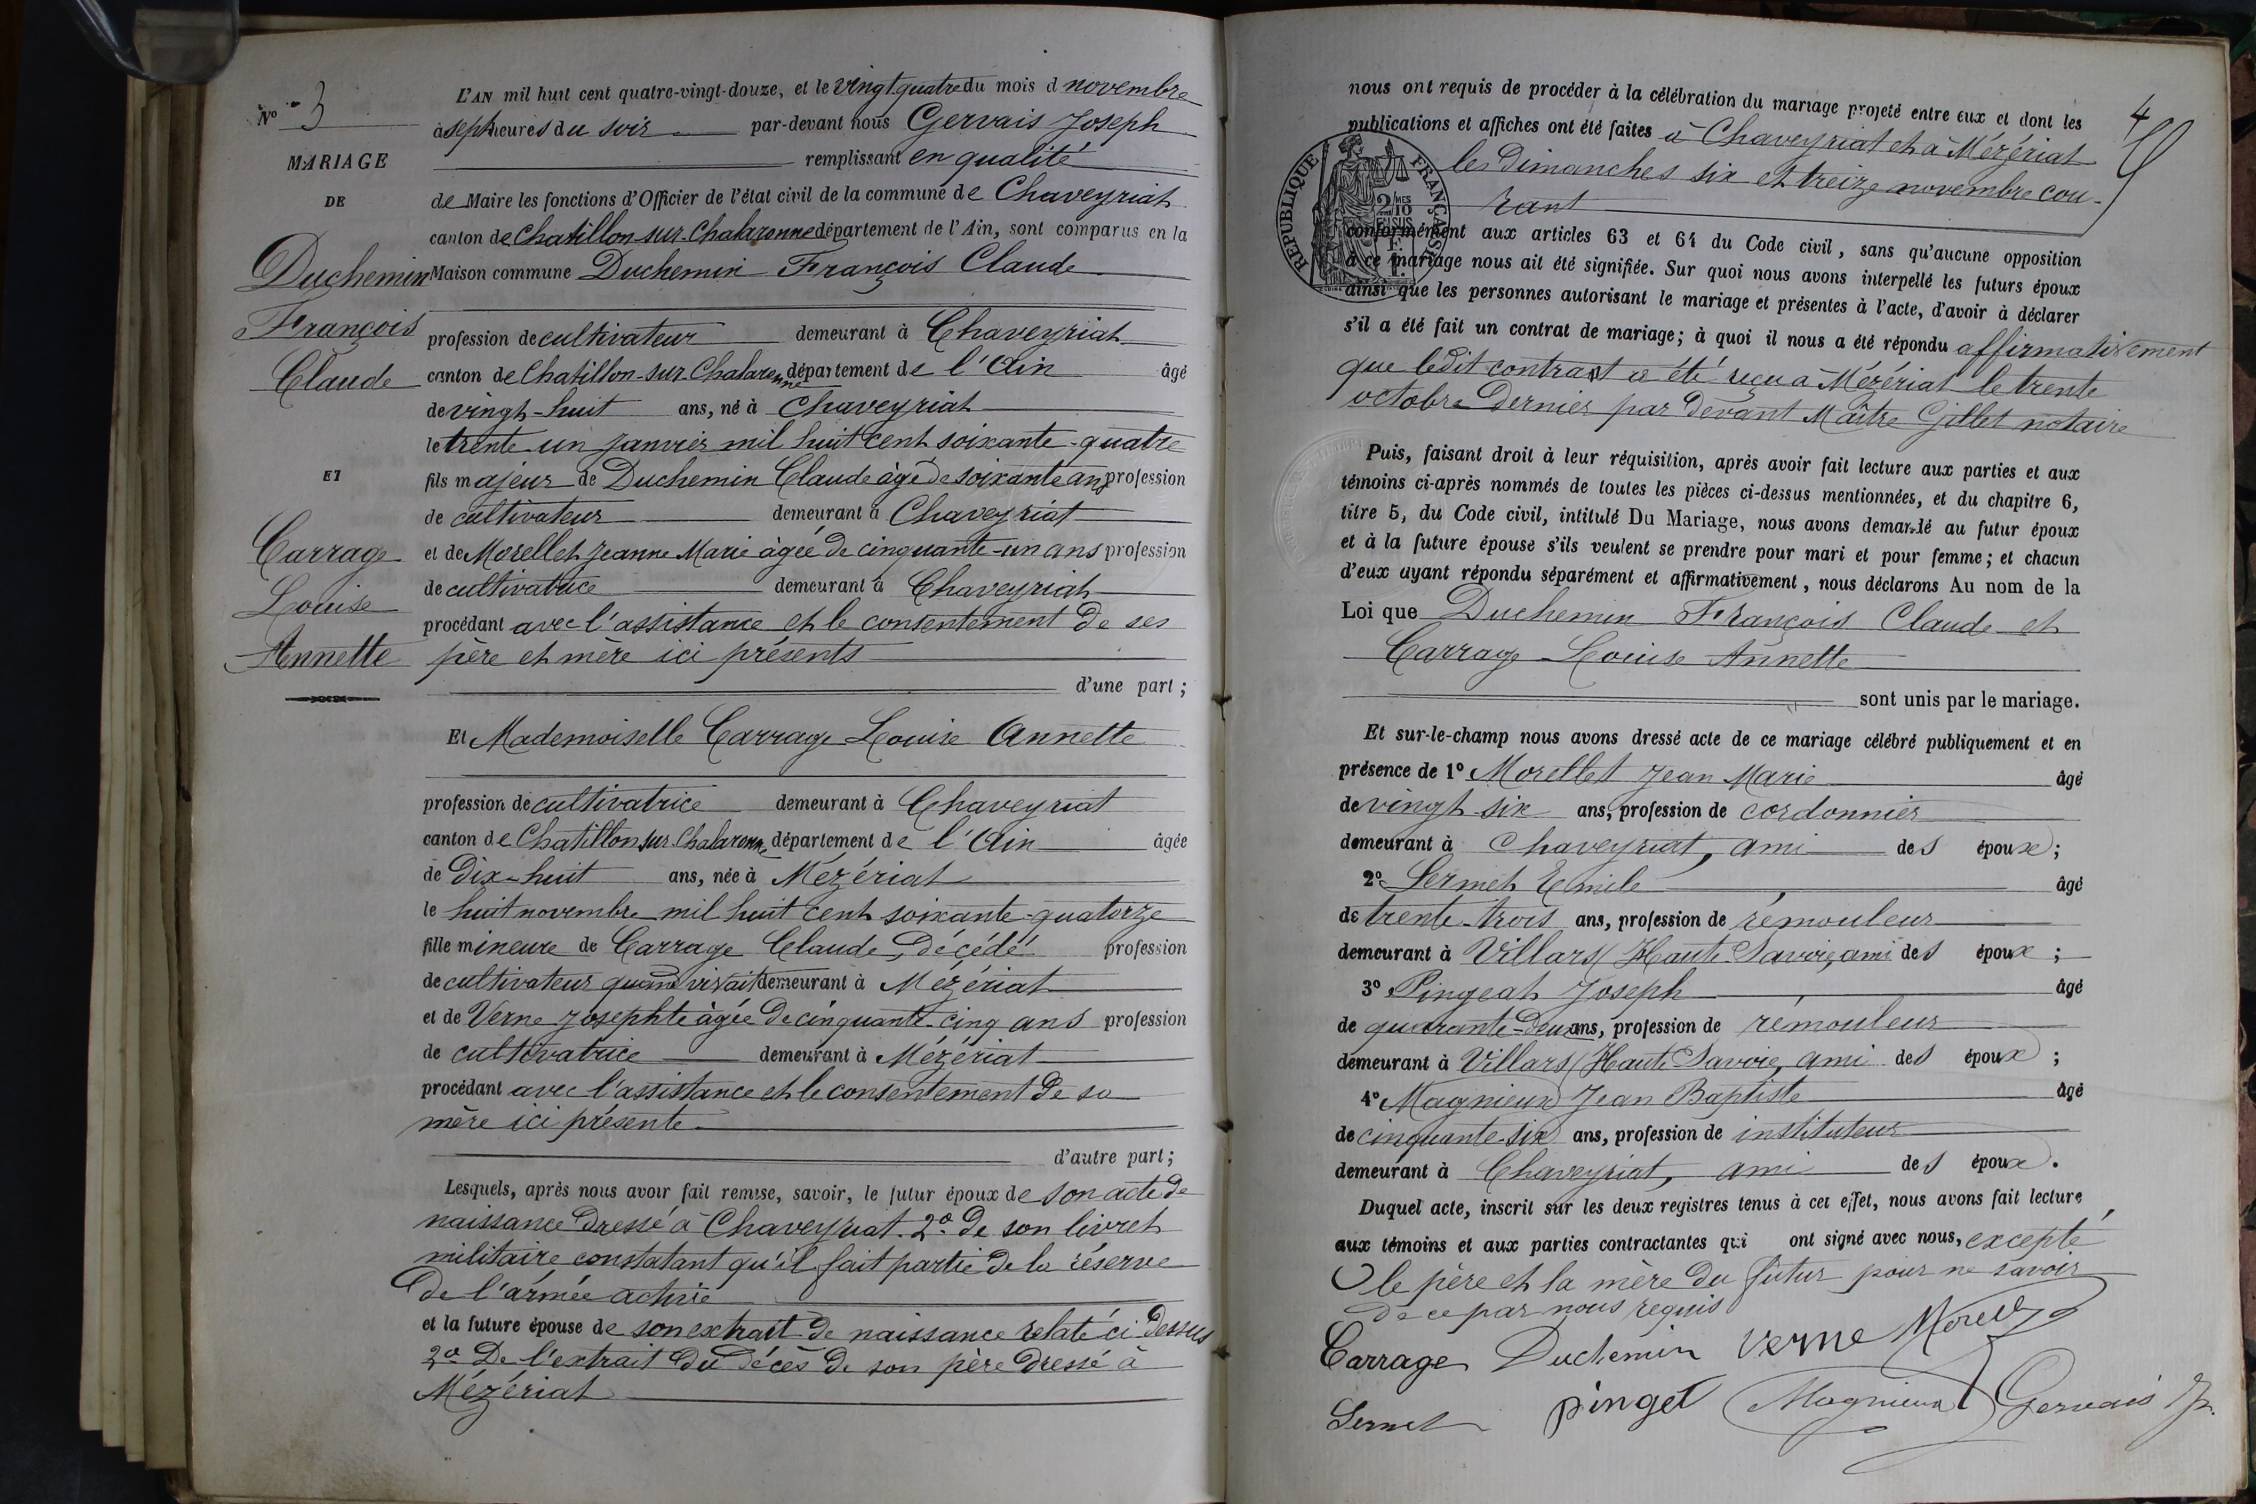 L'AN mil huit cent quatre-vingt-douze, et le vingt quatre du mois d novembre
N° 3
à sept heures du soir par-devant nous Gervais Joseph
MARIAGE
remplissant en qualité
DE
de Maire les fonctions d'Officier de l'état civil de la commune de Chaveyriat
canton de Chatillon-sur-Chalaronne département de l'Ain, sont comparus en la
Duchemin
Maison commune Duchemin François Claude
François
profession de cultivateur demeurant à Chaveyriat
Claude
canton de Chatillon-sur-Chalaronne département de l'Ain âgé
de vingt-huit ans, né à Chaveyriat
le trente un janvier mil huit cent soixante-quatre
ET
fils majeur de Duchemin Claude àgé de soixante ans profession
de cultivateur demeurant à Chaveyriat
Carrage
et de Morellet Jeanne Marie àgée de cinquante-un ans profession
de cultivatrice demeurant à Chaveyriat
Louise
procédant avec l'assistance et le consentement de ses
Annette
père et mère ici présents
d'une part;
Et Mademoiselle Carrage Louise Annette
profession de cultivatrice demeurant à Chaveyriat
canton de Chatillon sur-Chalaronne département de l'Ain âgée
de Dix-huit ans, née à Mézériat
le huit novembre mil huit cent soixante-quatorze
fille mineure de Carrage Claude, décédé profession
de cultivateur quand vivait demeurant à Mézériat
et de Verne Josephte àgée de cinquante-cinq ans profession
de cultivatrice demeurant à Mézériat
procédant avec l'assistance et le consentement de sa
mère ici présente
d'autre part;
Lesquels, après nous avoir fait remise, savoir, le futur époux de son acte de
naissance dressé à Chaveyriat. 2° de son livret
militaire constatant qu'il fait partie de la réserve
de l'armée active
et la future épouse de son extrait de naissance relaté ci dessus
2° De l'extrait du décès de son père dressé à
Mézériat
4
nous ont requis de procéder à la célébration du mariage projeté entre eux et dont les
publications et affiches ont été faites à Chaveyriat et à Mézériat
les dimanches six et treize novembre cou-
rant
RÉPUBLIQUE FRANÇAISE
2/10 EN SUS
conformément aux articles 63 et 64 du Code civil, sans qu'aucune opposition
à ce mariage nous ait été signifiée. Sur quoi nous avons interpellé les futurs époux
ainsi que les personnes autorisant le mariage et présentes à l'acte, d'avoir à déclarer
s'il a été fait un contrat de mariage; à quoi il nous a été répondu affirmativement
que ledit contrat a été reçu à Mézériat le trente
octobre dernier par devant Maître Gillet notaire
Puis, faisant droit à leur réquisition, après avoir fait lecture aux parties et aux
témoins ci-après nommés de toutes les pièces ci-dessus mentionnées, et du chapitre 6,
titre 5, du Code civil, intitulé Du Mariage, nous avons demandé au futur époux
et à la future épouse s'ils veulent se prendre pour mari et pour femme; et chacun
d'eux ayant répondu séparément et affirmativement, nous déclarons Au nom de la
Loi que Duchemin François Claude et
Carrage Louise Annette
sont unis par le mariage.
Et sur-le-champ nous avons dressé acte de ce mariage célébré publiquement et en
présence de 1° Morellet Jean Marie âgé
de vingt-six ans, profession de cordonnier
demeurant à Chaveyriat, ami des époux;
2° Sermet Emile âgé
de trente-trois ans, profession de rémouleur
demeurant à Villars (Haute-Savoie, ami des époux;
3° Pingeat Joseph âgé
de quarante-deux ans, profession de rémouleur
demeurant à Villars (Haute Savoie, ami des époux;
4° Magnieux Jean Baptiste âgé
de cinquante-six ans, profession de instituteur
demeurant à Chaveyriat, ami des époux.
Duquel acte, inscrit sur les deux registres tenus à cet effet, nous avons fait lecture
aux témoins et aux parties contractantes qui ont signé avec nous, excepté
le père et la mère du futur pour ne savoir
de ce par nous requis
Carrage Duchemin Verne
Sermet pinget Magnieux Gervais Jh